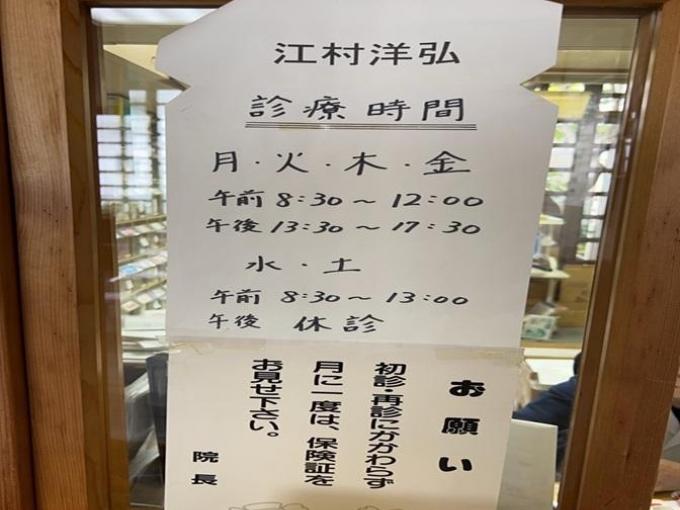 江村洋弘
診療時間
月・火・木・金
午前 8:30～12:00
午後 13:30～17:30
水・土
午前 8:30～13:00
午後 休診
お願い
初診・再診にかかわらず
月に一度は、保険証を
お見せ下さい。
院長